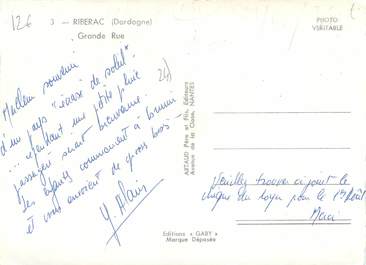 126
3 — RIBERAC (Dordogne)
Grande Rue
PHOTO
VÉRITABLE
24
Meilleur souvenir
d'un pays "écrasé de soleil"
... cependant une petite pluie
passagère serait bienvenue.
Les enfants commencent à brunir
et vous envoient de gros bisous
Y. Alain
ARTAUD Père et Fils, Éditeurs
Avenue de la Close, NANTES
Veuillez trouver ci joint le
chèque du loyer pour le 1er Août.
Merci
Editions « GABY »
Marque Déposée